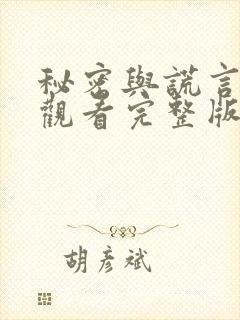 秘密與謊言
觀看完整版
胡彥斌